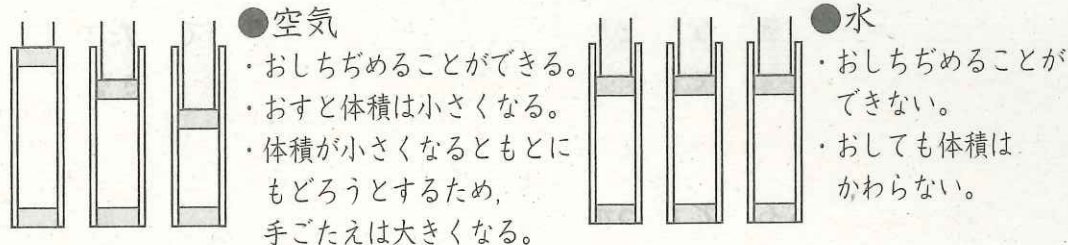 ●空気
・おしちぢめることができる。
・おすと体積は小さくなる。
・体積が小さくなるともとに
もどろうとするため,
手ごたえは大きくなる。
●水
・おしちぢめることが
できない。
・おしても体積は
かわらない。